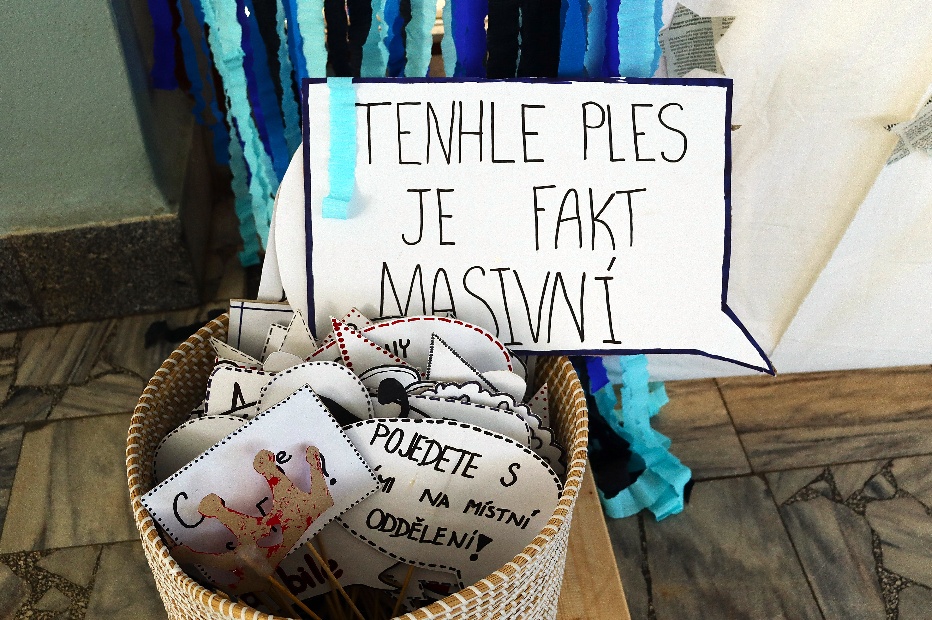 TENHLE PLES
JE FAKT
MASIVNÍ
NY
A
POJEDETE S
MI NA MÍSTNÍ
ODDĚLENÍ!
bíle